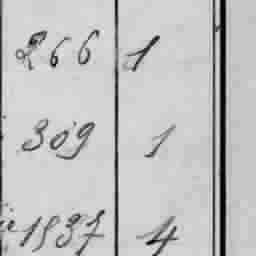 266 1
309 1
1937 4